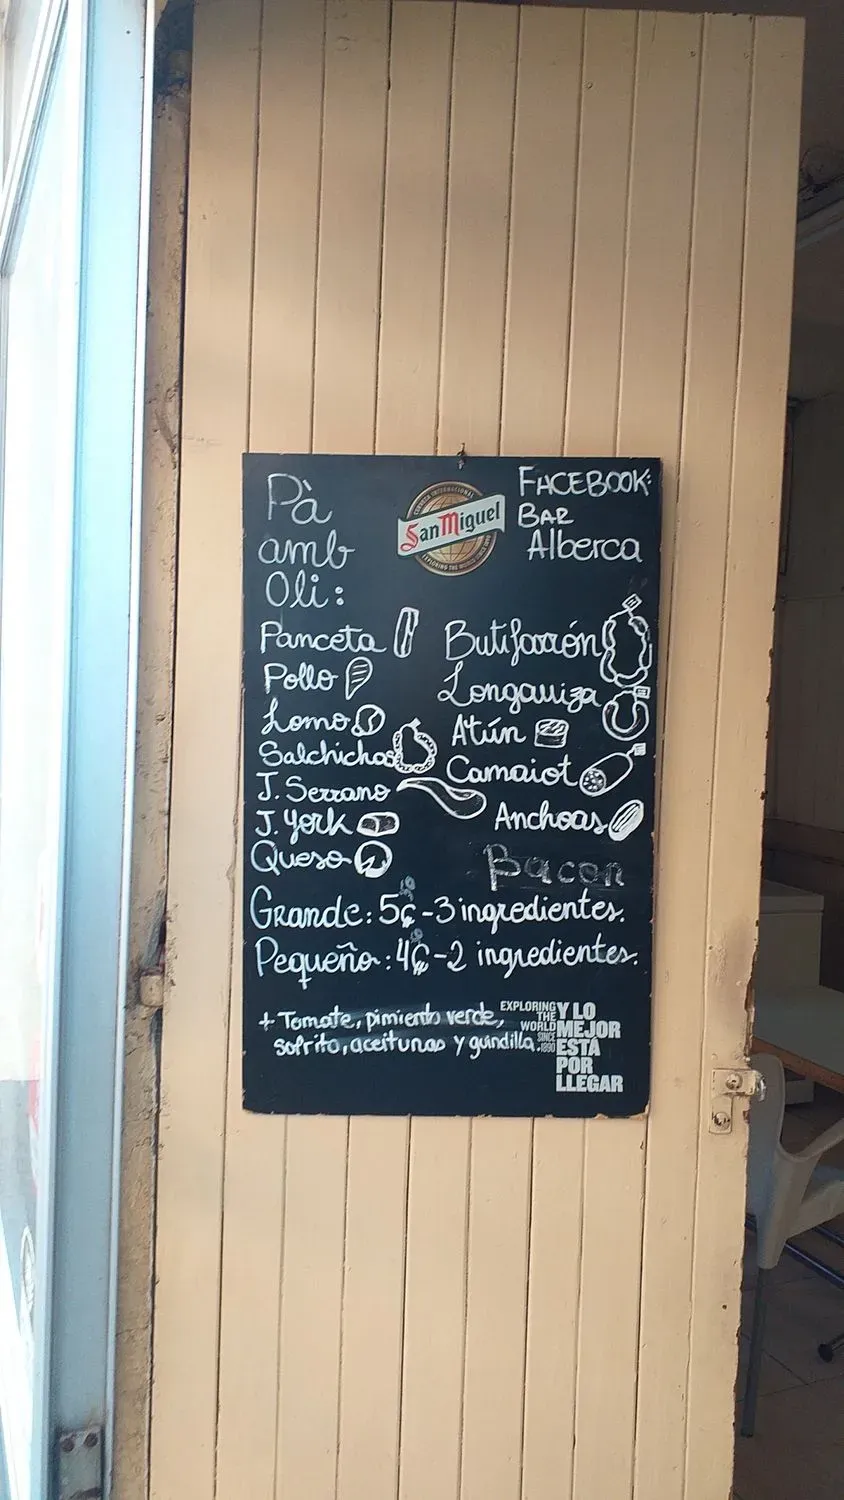 Pà
amb
Oli:
CERVEZA INTERNACIONAL
San Miguel
EXPLORING THE WORLD SINCE 1890
FACEBOOK:
BAR
Alberca
Panceta
Pollo
Lomo
Salchichas
J. Serrano
J. York
Queso
Butifarrón
Longaniza
Atún
Camaiot
Anchoas
Bacon
Grande: 5€ - 3 ingredientes.
Pequeño: 4€ - 2 ingredientes.
+ Tomate, pimiento verde,
sofrito, aceitunas y guindilla.
EXPLORING
THE
WORLD
SINCE
1890
Y LO
MEJOR
ESTÁ
POR
LLEGAR